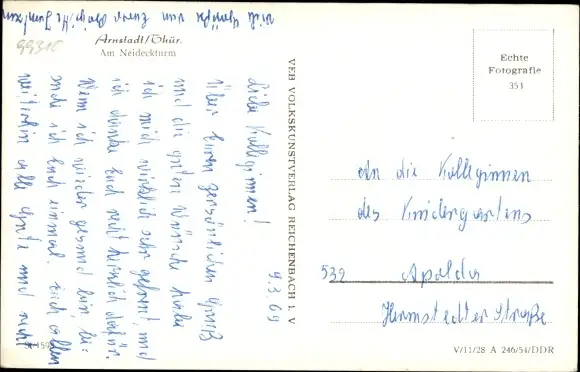 99310
Arnstadt/Thür.
Am Neideckturm
9.3.64
Liebe Kolleginnen!
Über Euren persönlichen Gruß
und die guten Wünsche habe
ich mich wirklich sehr gefreut, und
ich danke Euch recht herzlich dafür.
Wenn ich wieder gesund bin, be-
suche ich Euch einmal. Euch allen
weiterhin alles Gute und recht
viele Grüße von Eurer
VEB VOLKSKUNSTVERLAG REICHENBACH I. V
Echte
Fotografie
353
An die Kolleginnen
des Kindergartens
532 Apolda
Hermstedter Straße
V/11/28 A 246/54/DDR